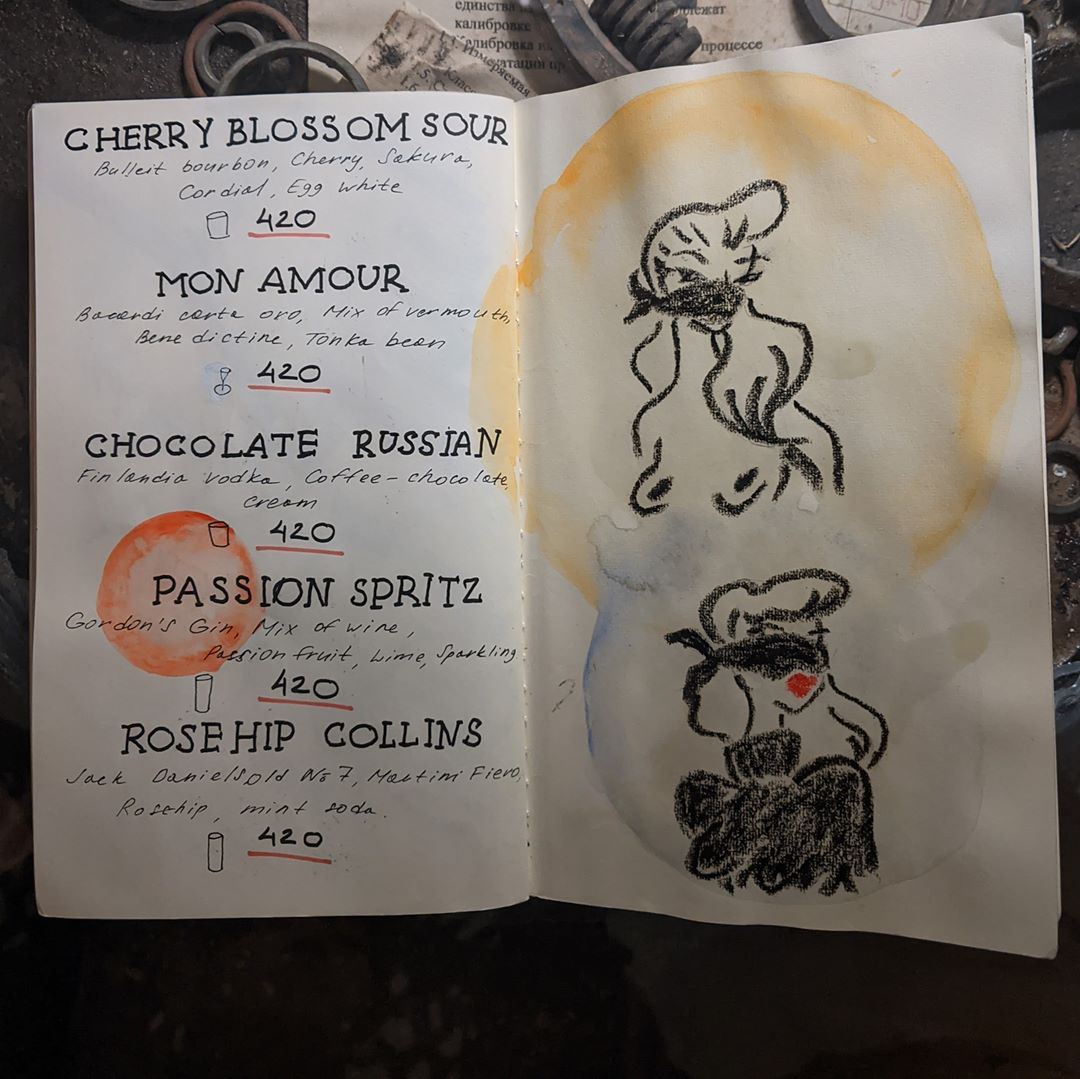 единства
калибровке
процессе
CHERRY BLOSSOM SOUR
Bulleit bourbon, Cherry, Sakura,
Cordial, Egg white
420
MON AMOUR
Bacardi carta oro, Mix of vermouth,
Benedictine, Tonka bean
420
CHOCOLATE RUSSIAN
Finlandia vodka, Coffee-chocolate
cream
420
PASSION SPRITZ
Gordon's Gin, Mix of wine,
Passion fruit, Lime, Sparkling
420
ROSEHIP COLLINS
Jack Daniels Old № 7, Martini Fiero,
Rosehip, mint soda.
420